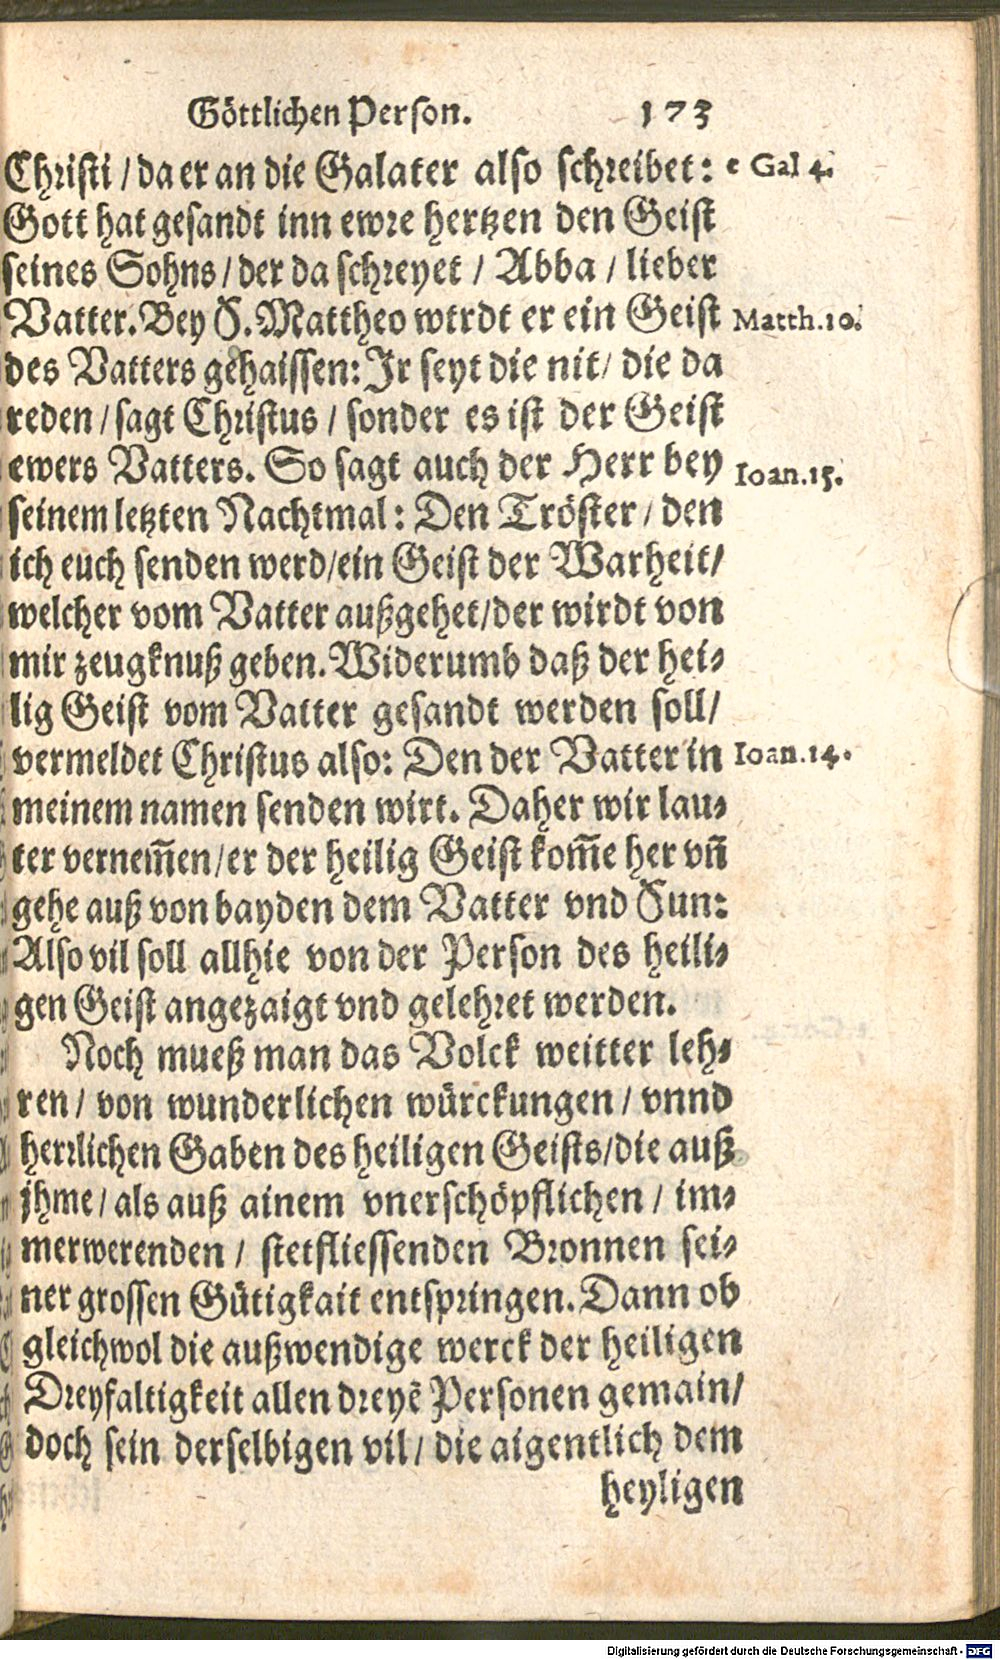 Göttlichen Person. 173
Christi / da er an die Galater also schreibet: e Gal 4.
Gott hat gesandt inn ewre hertzen den Geist
seines Sohns / der da schreyet / Abba / lieber
Vatter. Bey S. Mattheo wirdt er ein Geist Matth. 10.
des Vatters gehaissen: Jr seyt die nit / die da
reden / sagt Christus / sonder es ist der Geist
ewers Vatters. So sagt auch der Herr bey Ioan. 15.
seinem letzten Nachtmal: Den Tröster / den
ich euch senden werd / ein Geist der Warheit /
welcher vom Vatter außgehet / der wirdt von
mir zeugknuß geben. Widerumb daß der hei-
lig Geist vom Vatter gesandt werden soll /
vermeldet Christus also: Den der Vatter in Ioan. 14.
meinem namen senden wirt. Daher wir lau-
ter vernem̃en / er der heilig Geist kom̃e her vñ
gehe auß von bayden dem Vatter vnd Sun:
Also vil soll allhie von der Person des heili-
gen Geist angezaigt vnd gelehret werden.
Noch mueß man das Volck weitter leh-
ren / von wunderlichen würckungen / vnnd
herrlichen Gaben des heiligen Geists / die auß
jhme / als auß ainem vnerschöpflichen / im-
merwerenden / stetfliessenden Bronnen sei-
ner grossen Gütigkait entspringen. Dann ob
gleichwol die außwendige werck der heiligen
Dreyfaltigkeit allen dreyē Personen gemain /
doch sein derselbigen vil / die aigentlich dem
heyligen
Digitalisierung gefördert durch die Deutsche Forschungsgemeinschaft - DFG